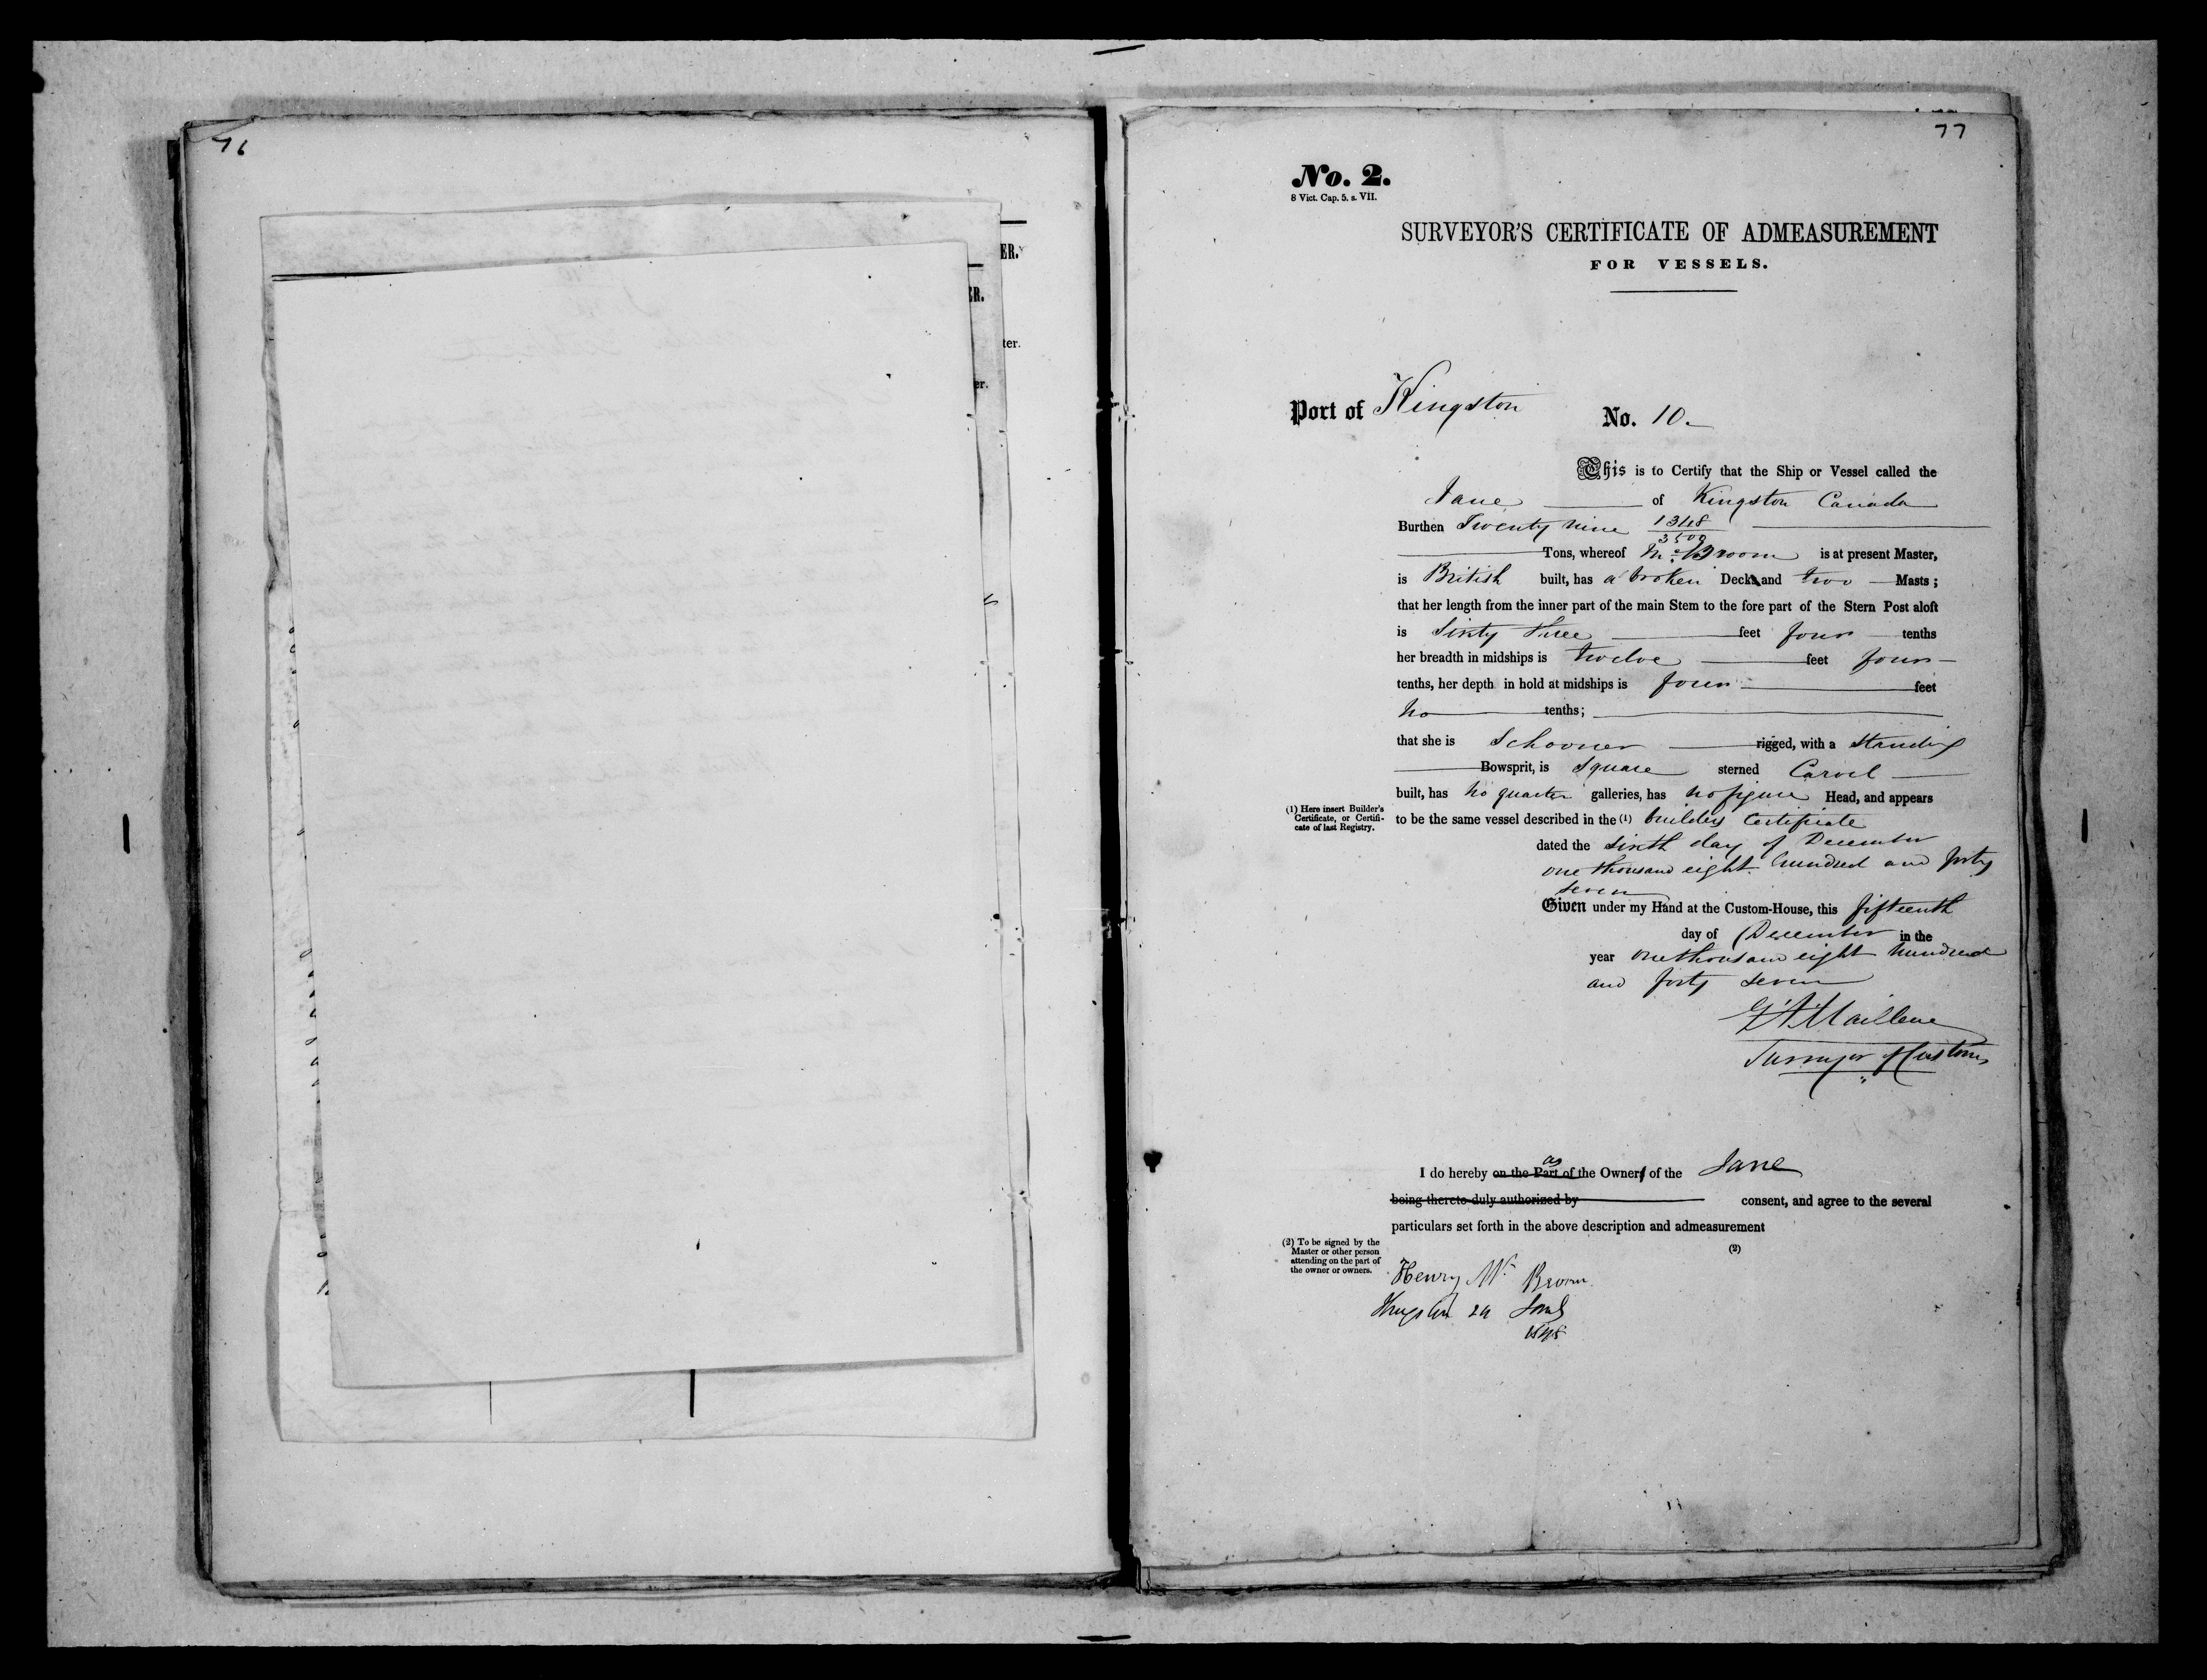 76
ER.
ER.
ter.
er.
77
No. 2.
8 Vict. Cap. 5. s. VII.
SURVEYOR'S CERTIFICATE OF ADMEASUREMENT
FOR VESSELS.
Port of Kingston No. 10
This is to Certify that the Ship or Vessel called the
Jane of Kingston Canada
Burthen Twenty nine 1348
3500
Tons, whereof Mc Broom is at present Master,
is British built, has a broken Deck and two Masts;
that her length from the inner part of the main Stem to the fore part of the Stern Post aloft
is Sixty three feet four tenths
her breadth in midships is twelve feet four
tenths, her depth in hold at midships is four feet
no tenths;
that she is Schooner rigged, with a standing
Bowsprit, is square sterned Carvel
built, has no quarter galleries, has no figure Head, and appears
(1) Here insert Builder's
Certificate, or Certifi-
cate of last Registry.
to be the same vessel described in the (1) builders Certificate
dated the sixth day of December
one thousand eight hundred and forty
seven
Given under my Hand at the Custom-House, this fifteenth
day of December in the
year one thousand eight hundred
and forty seven
Surveyor of Customs
as
I do hereby on the Part of the Owner of the Jane
being thereto duly authorized by consent, and agree to the several
particulars set forth in the above description and admeasurement
(2)
(2) To be signed by the
Master or other person
attending on the part of
the owner or owners.
Henry Mc Broom
Kingston
1848